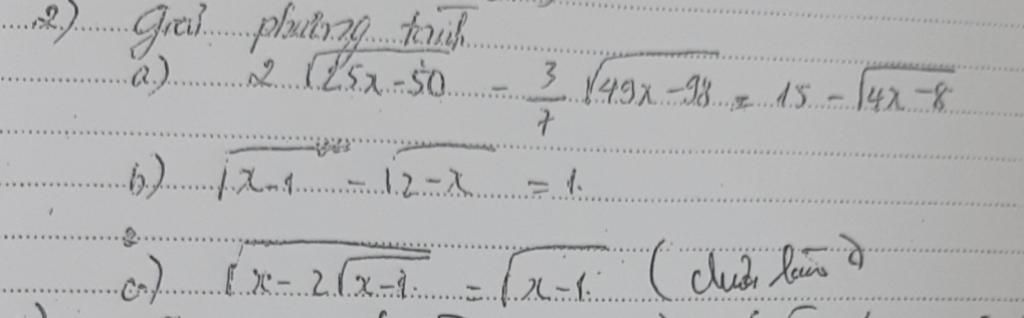 2) Giải phương trình
a) 2√(25x-50) - 3/7 √(49x-98) = 15 - √(4x-8)
b) √(x-1) - √(2-x) = 1.
c) √(x-2√(x-1)) = √(x-1) (chưa làm)